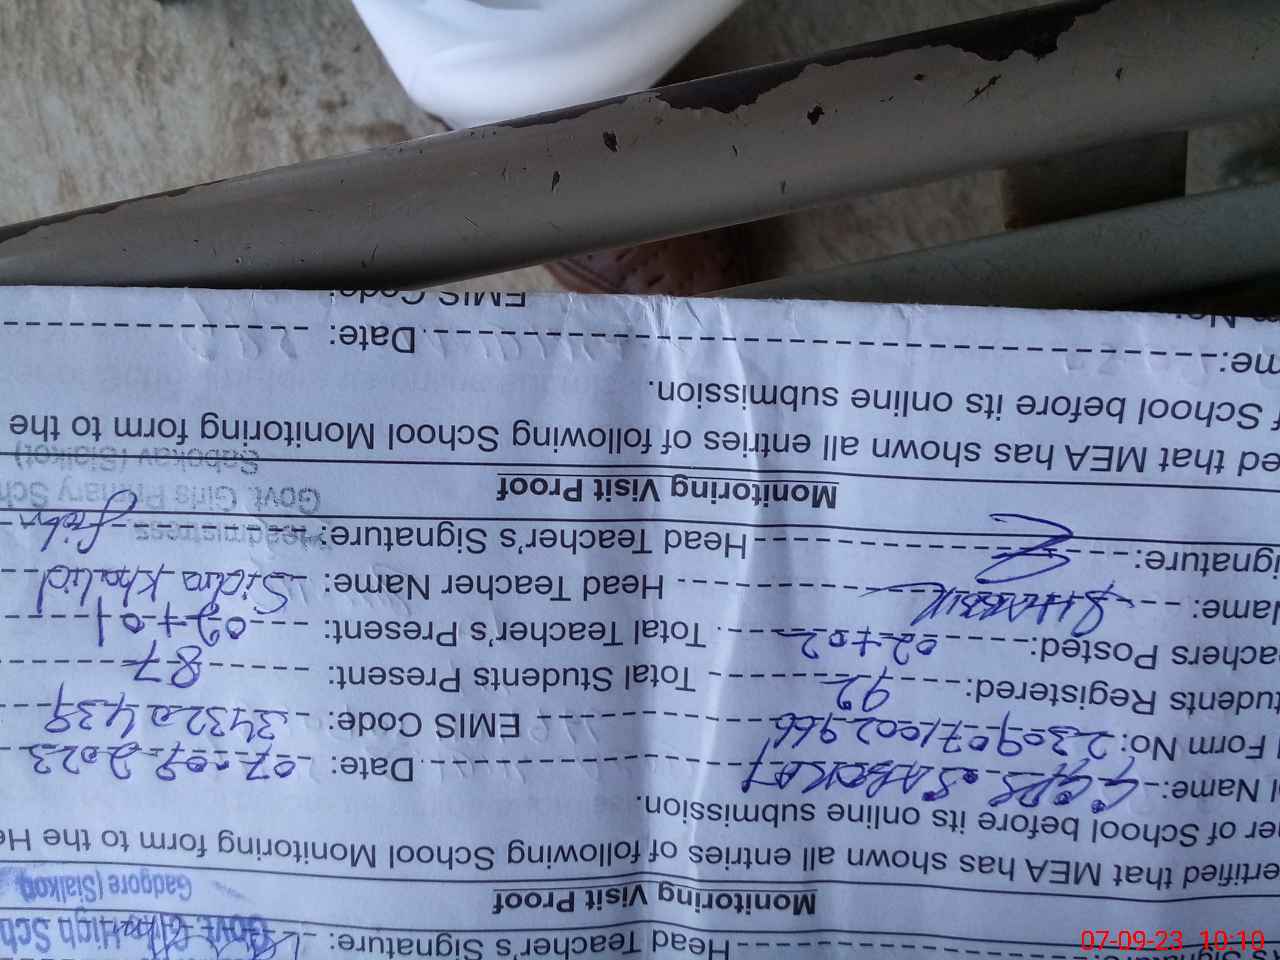 Head Teacher's Signature:
Govt. Girls High Sch
Gadgore (Sialkot)
Monitoring Visit Proof
ertified that MEA has shown all entries of following School Monitoring form to the He
er of School before its online submission.
l Name: G.GPS SABOKAY Date: 07-09-2023
Form No: 2309071002966 EMIS Code: 34320439
tudents Registered: 92 Total Students Present: 87
eachers Posted: 02+02 Total Teacher's Present: 02+01
Name: Head Teacher Name: Sidra Khalid
ignature: Head Teacher's Signature:
Headmistress
Govt. Girls Primary Sch
Sabokay (Sialkot)
Monitoring Visit Proof
ed that MEA has shown all entries of following School Monitoring form to the
f School before its online submission.
me: Date:
No: EMIS Code:
07-09-23 10:10